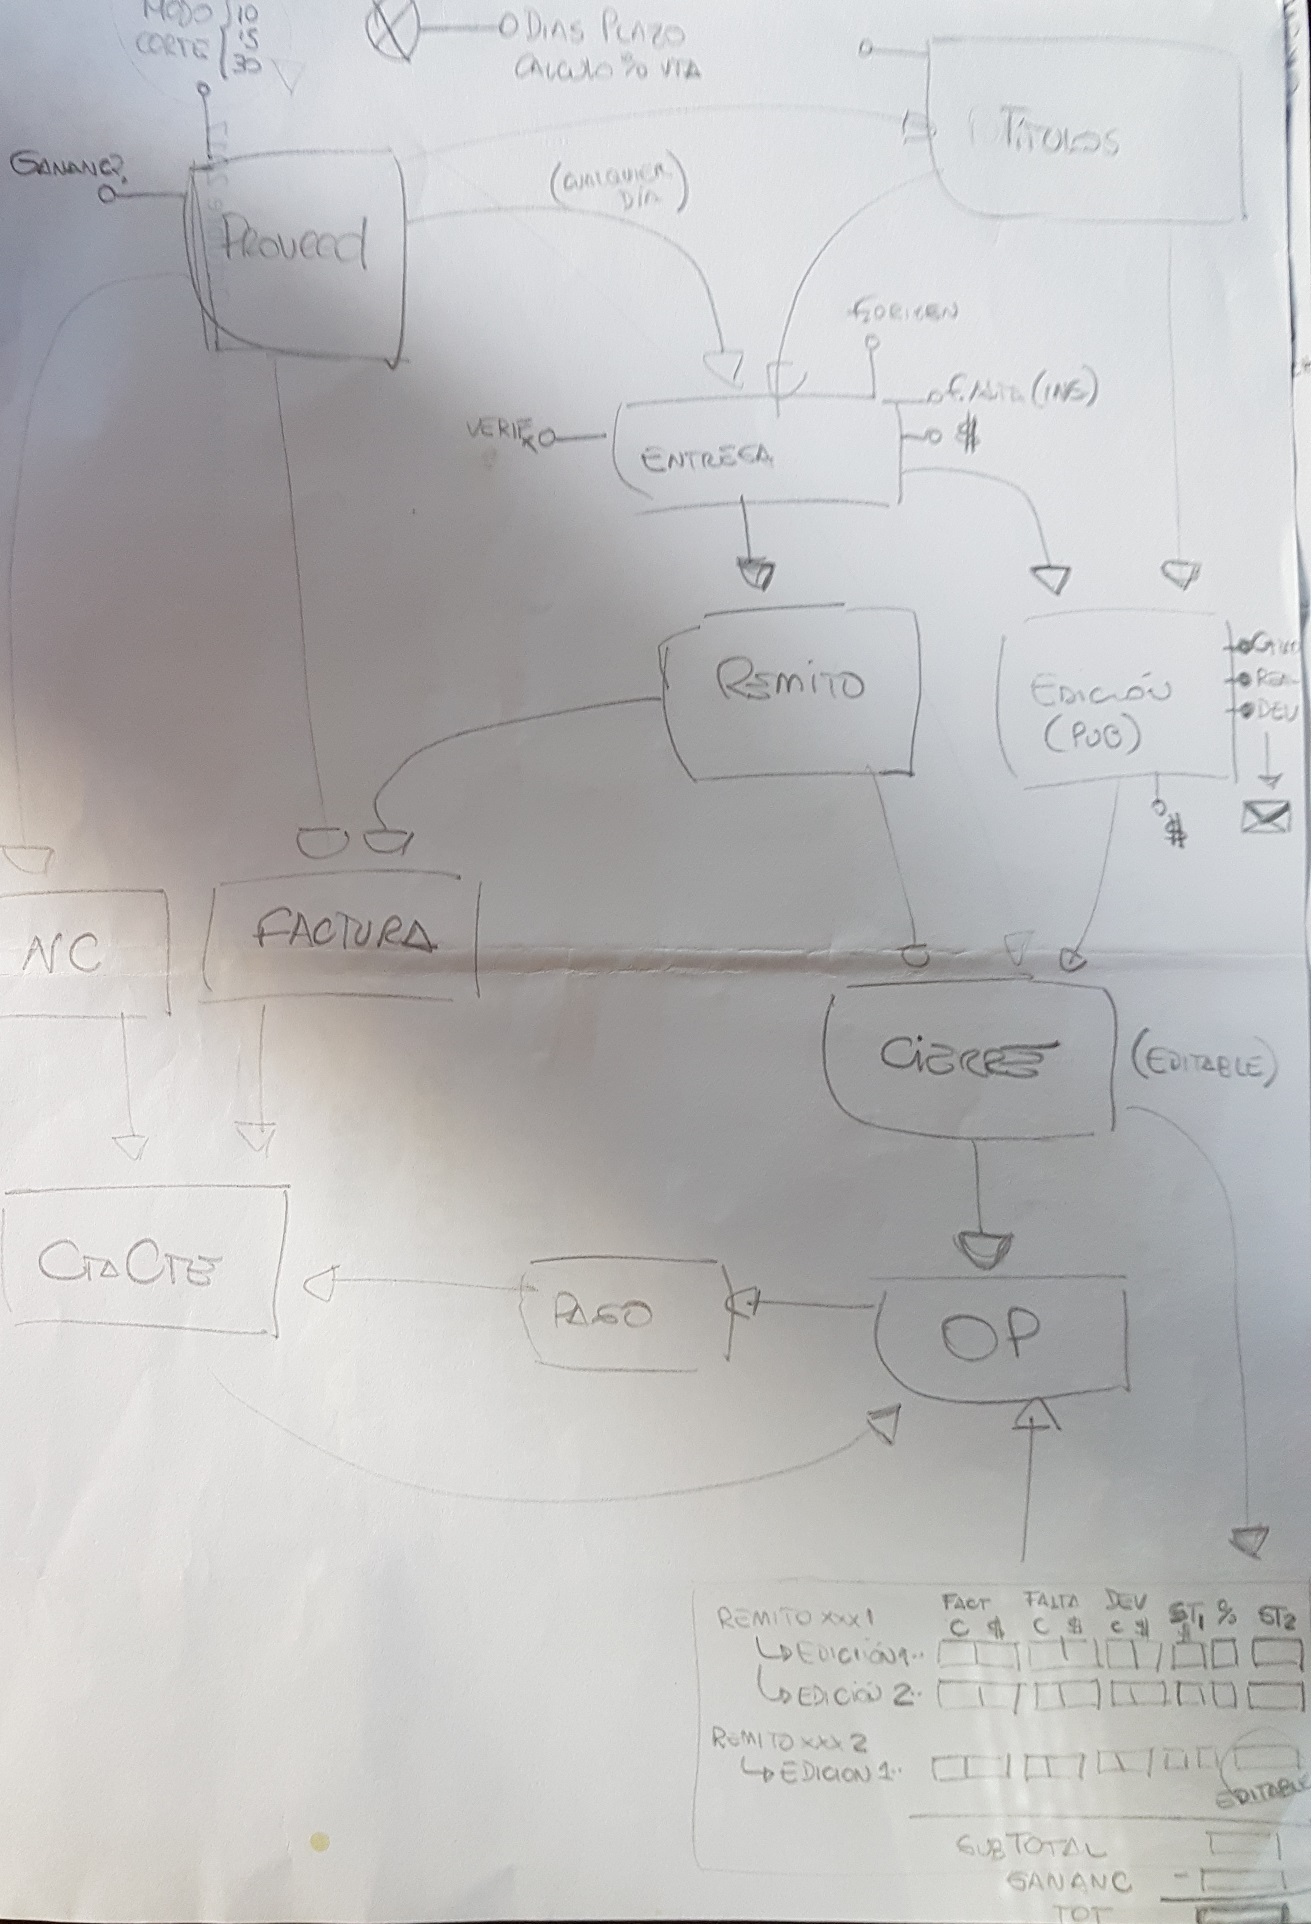 MODO 10
CORTE 15
30
DIAS PLAZO
CALCULO % VTA
TITULOS
GANANC?
PROVEED
(CUALQUIER
DÍA)
F. ORIGEN
F. ALTA (INS)
VERIF
$
ENTREGA
REMITO
EDICIÓN
(PUB)
REA
DEV
$
NC
FACTURA
CIERRE
(EDITABLE)
CTA CTE
PAGO
OP
FACT FALTA DEV ST1 % ST2
REMITO XXX1 C $ C $ C $ $
EDICIÓN 1..
EDICIÓN 2..
REMITO XXX2
EDICION 1..
EDITABLE
SUBTOTAL
GANANC -
TOT